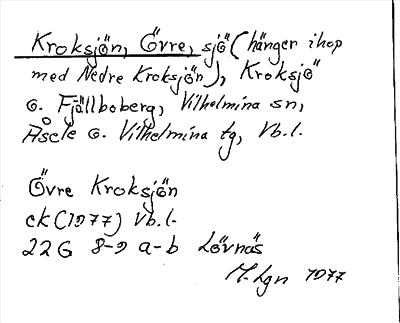 Kroksjön, Övre, sjö (hänger ihop
med Nedre Kroksjön), Kroksjö
o. Fjällboberg, Vilhelmina sn,
Åsele o. Vilhelmina tg, Vb.l.
Övre Kroksjön
ek (1977) Vb.l.
22G 8-9 a-b Lövnäs
M-Lgn 1977